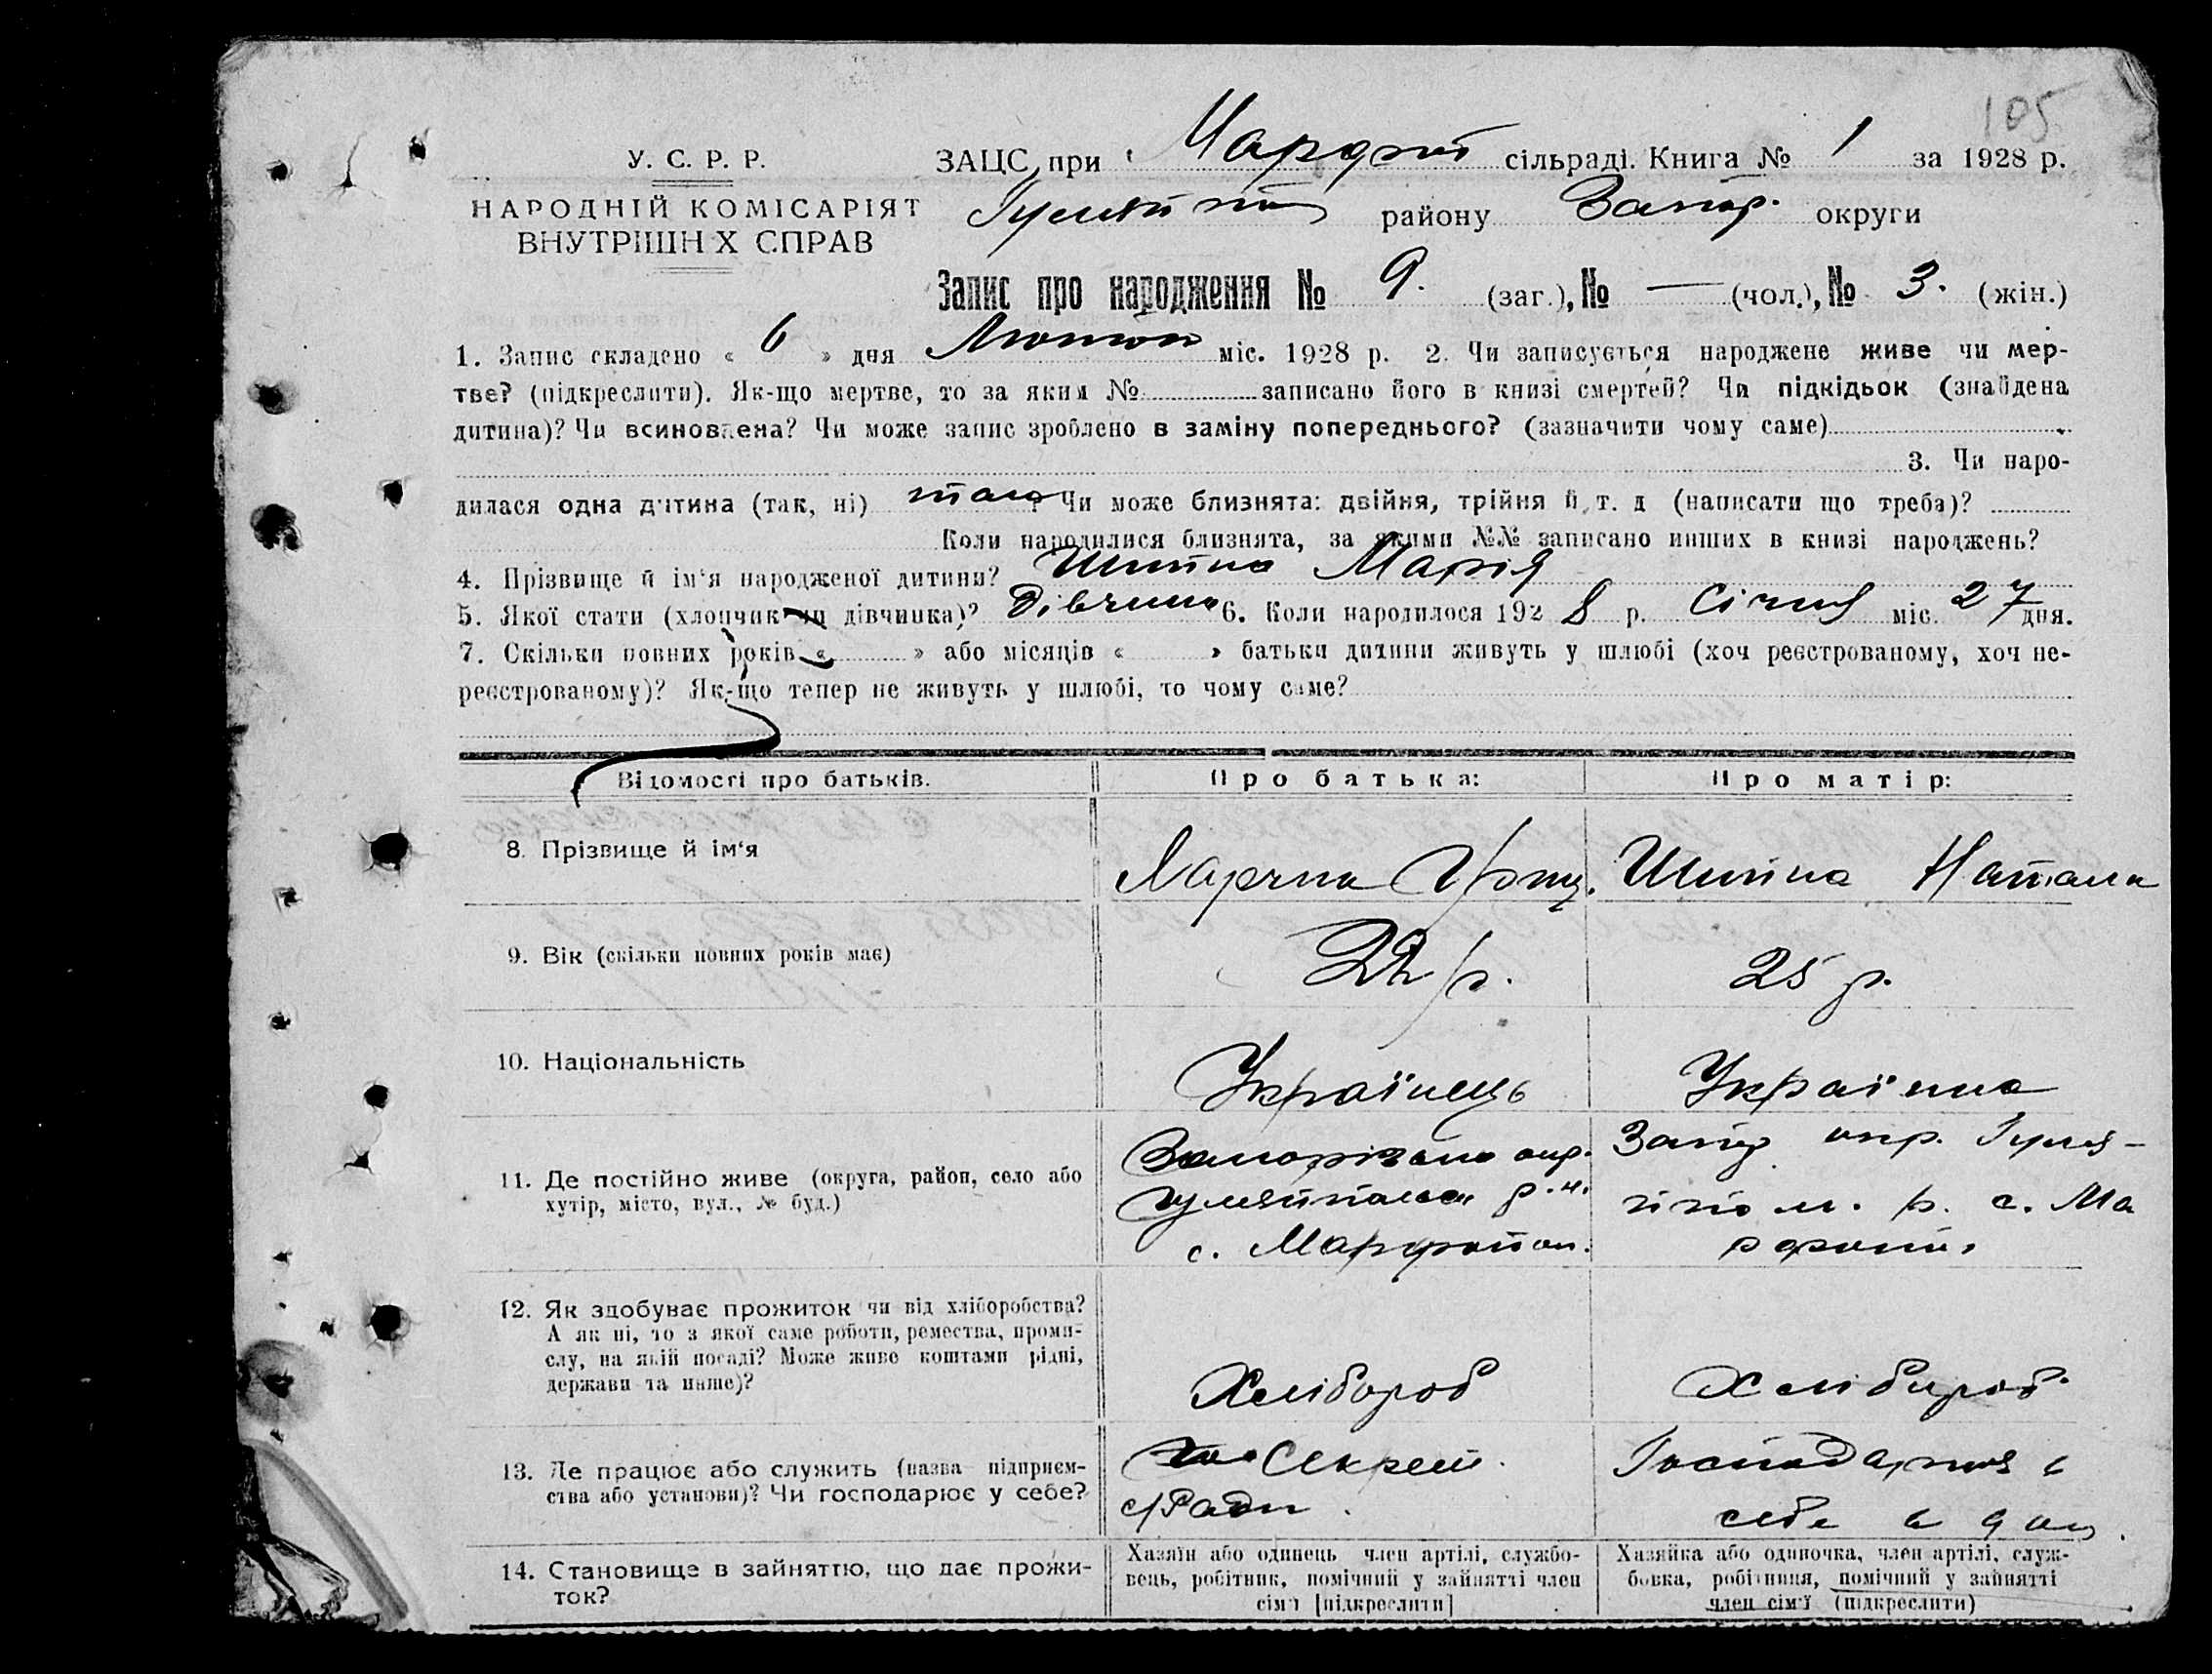 105
У. С. Р. Р.
ЗАЦС при Марфоп сільраді. Книга № 1 за 1928 р.
НАРОДНІЙ КОМІСАРІЯТ
ВНУТРІШН Х СПРАВ
району Запор. округи
Запис про народження № 9. (заг.), № — (чол.), № 3. (жін.)
1. Запис складено « 6 » дня Лютого міс. 1928 р. 2. Чи записується народжене живе чи мер-
тве? (підкреслити). Як-що мертве, то за яким № записано його в книзі смертей? Чи підкідьок (знайдена
дитина)? Чи всиновлена? Чи може запис зроблено в заміну попереднього? (зазначити чому саме)
3. Чи наро-
дилася одна дитина (так, ні) так ? Чи може близнята: двійня, трійня й т. д (написати що треба)?
Коли народилися близнята, за якими №№ записано инших в книзі народжень?
4. Прізвище й ім'я народженої дитини? Марія
5. Якої стати (хлопчик чи дівчинка)? Дівчина 6. Коли народилося 1928 р. Січня міс. 27 дня.
7. Скільки повних років « » або місяців « » батьки дитини живуть у шлюбі (хоч реєстрованому, хоч не-
реєстрованому)? Як-що тепер не живуть у шлюбі, то чому саме?
Відомості про батьків. Про батька: Про матір:
8. Прізвище й ім'я
Натали
9. Вік (скільки повних років має)
22 р. 25 р.
10. Національність
Українець Українка
11. Де постійно живе (округа, район, село або
хутір, місто, вул., № буд.)
Запорізько окр. Запор окр. Гуляй-
р. н. р. с. Ма
с. Марфопол.
12. Як здобуває прожиток чи від хліборобства?
А як ні, то з якої саме роботи, ремества, проми-
слу, на якій посаді? Може живе коштами рідні,
держави та инше)?
Хлібороб Хлібороб
13. Де працює або служить (назва підприєм-
ства або установи)? Чи господарює у себе?
Секрет. Господарює в
с/Ради. себе в дом.
14. Становище в зайняттю, що дає прожи-
ток?
Хазяїн або одинець член артілі, службо-
вець, робітник, помічний у зайнятті член
сім'ї [підкреслити]
Хазяйка або одиночка, член артілі, служ-
бовка, робітниця, помічний у зайнятті
член сім'ї (підкреслити)